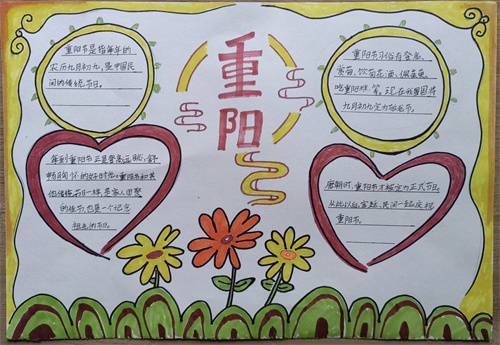 重阳
重阳节是指每年的
农历九月初九,是中国民
间的传统节日。
重阳节习俗有登高、
赏菊、饮菊花酒、佩茱萸
吃重阳糕等。现在我国将
九月初九定为敬老节。
每到重阳节正是登高远眺,舒
畅胸怀的好时光。重阳节和其
他传统节日一样,是家人团聚
的佳节,也是一个纪念
祖先的节日。
唐朝时,重阳节才被定为正式节日。
从此以后,宫廷、民间一起庆祝
重阳节。